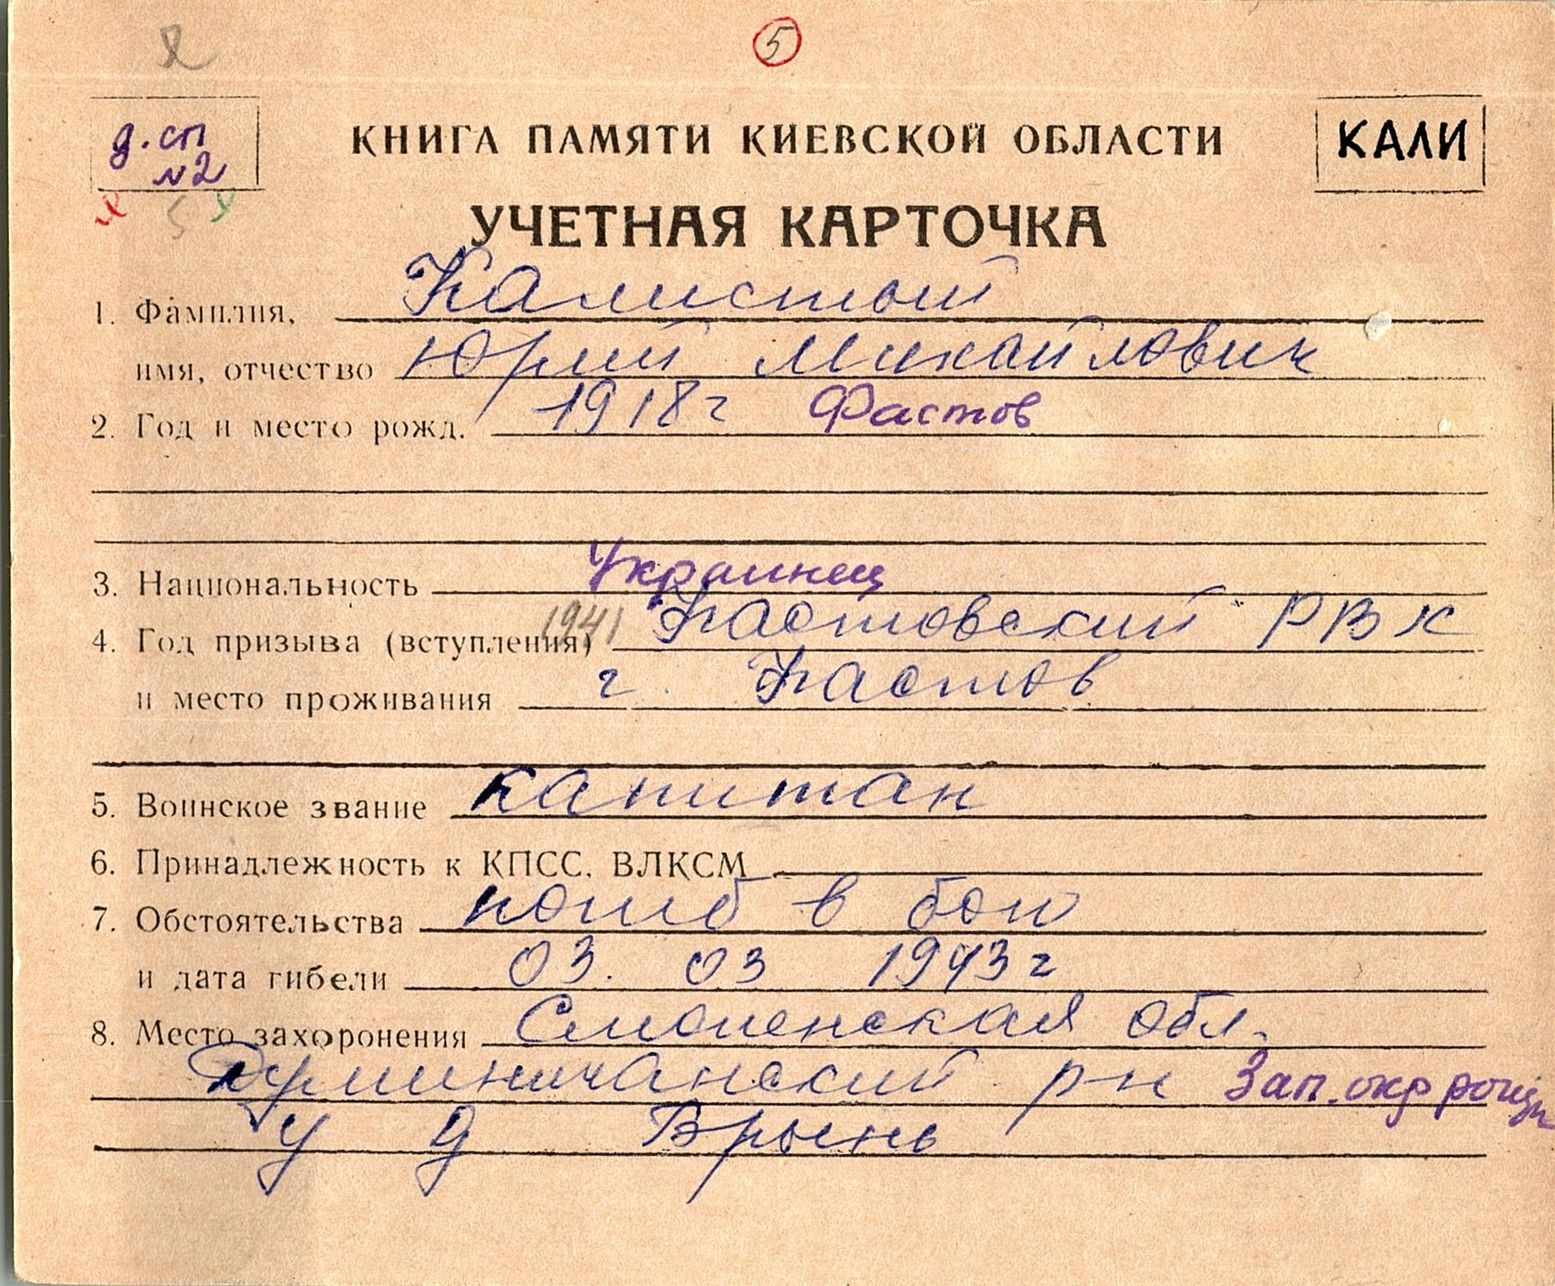 5
д. сп
N2
КНИГА ПАМЯТИ КИЕВСКОЙ ОБЛАСТИ
КАЛИ
5
УЧЕТНАЯ КАРТОЧКА
1. Фамилия, Калистый
имя, отчество Юрий Михайлович
2. Год и место рожд. 1918 г Фастов
3. Национальность Украинец
4. Год призыва (вступления) 1941 Фастовский РВК
и место проживания г. Фастов
5. Воинское звание капитан
6. Принадлежность к КПСС, ВЛКСМ
7. Обстоятельства погиб в бою
и дата гибели 03. 03 1943 г
8. Место захоронения Смоленская обл.
Думиничанский р-н Зап. окр рощи
у д Брынь